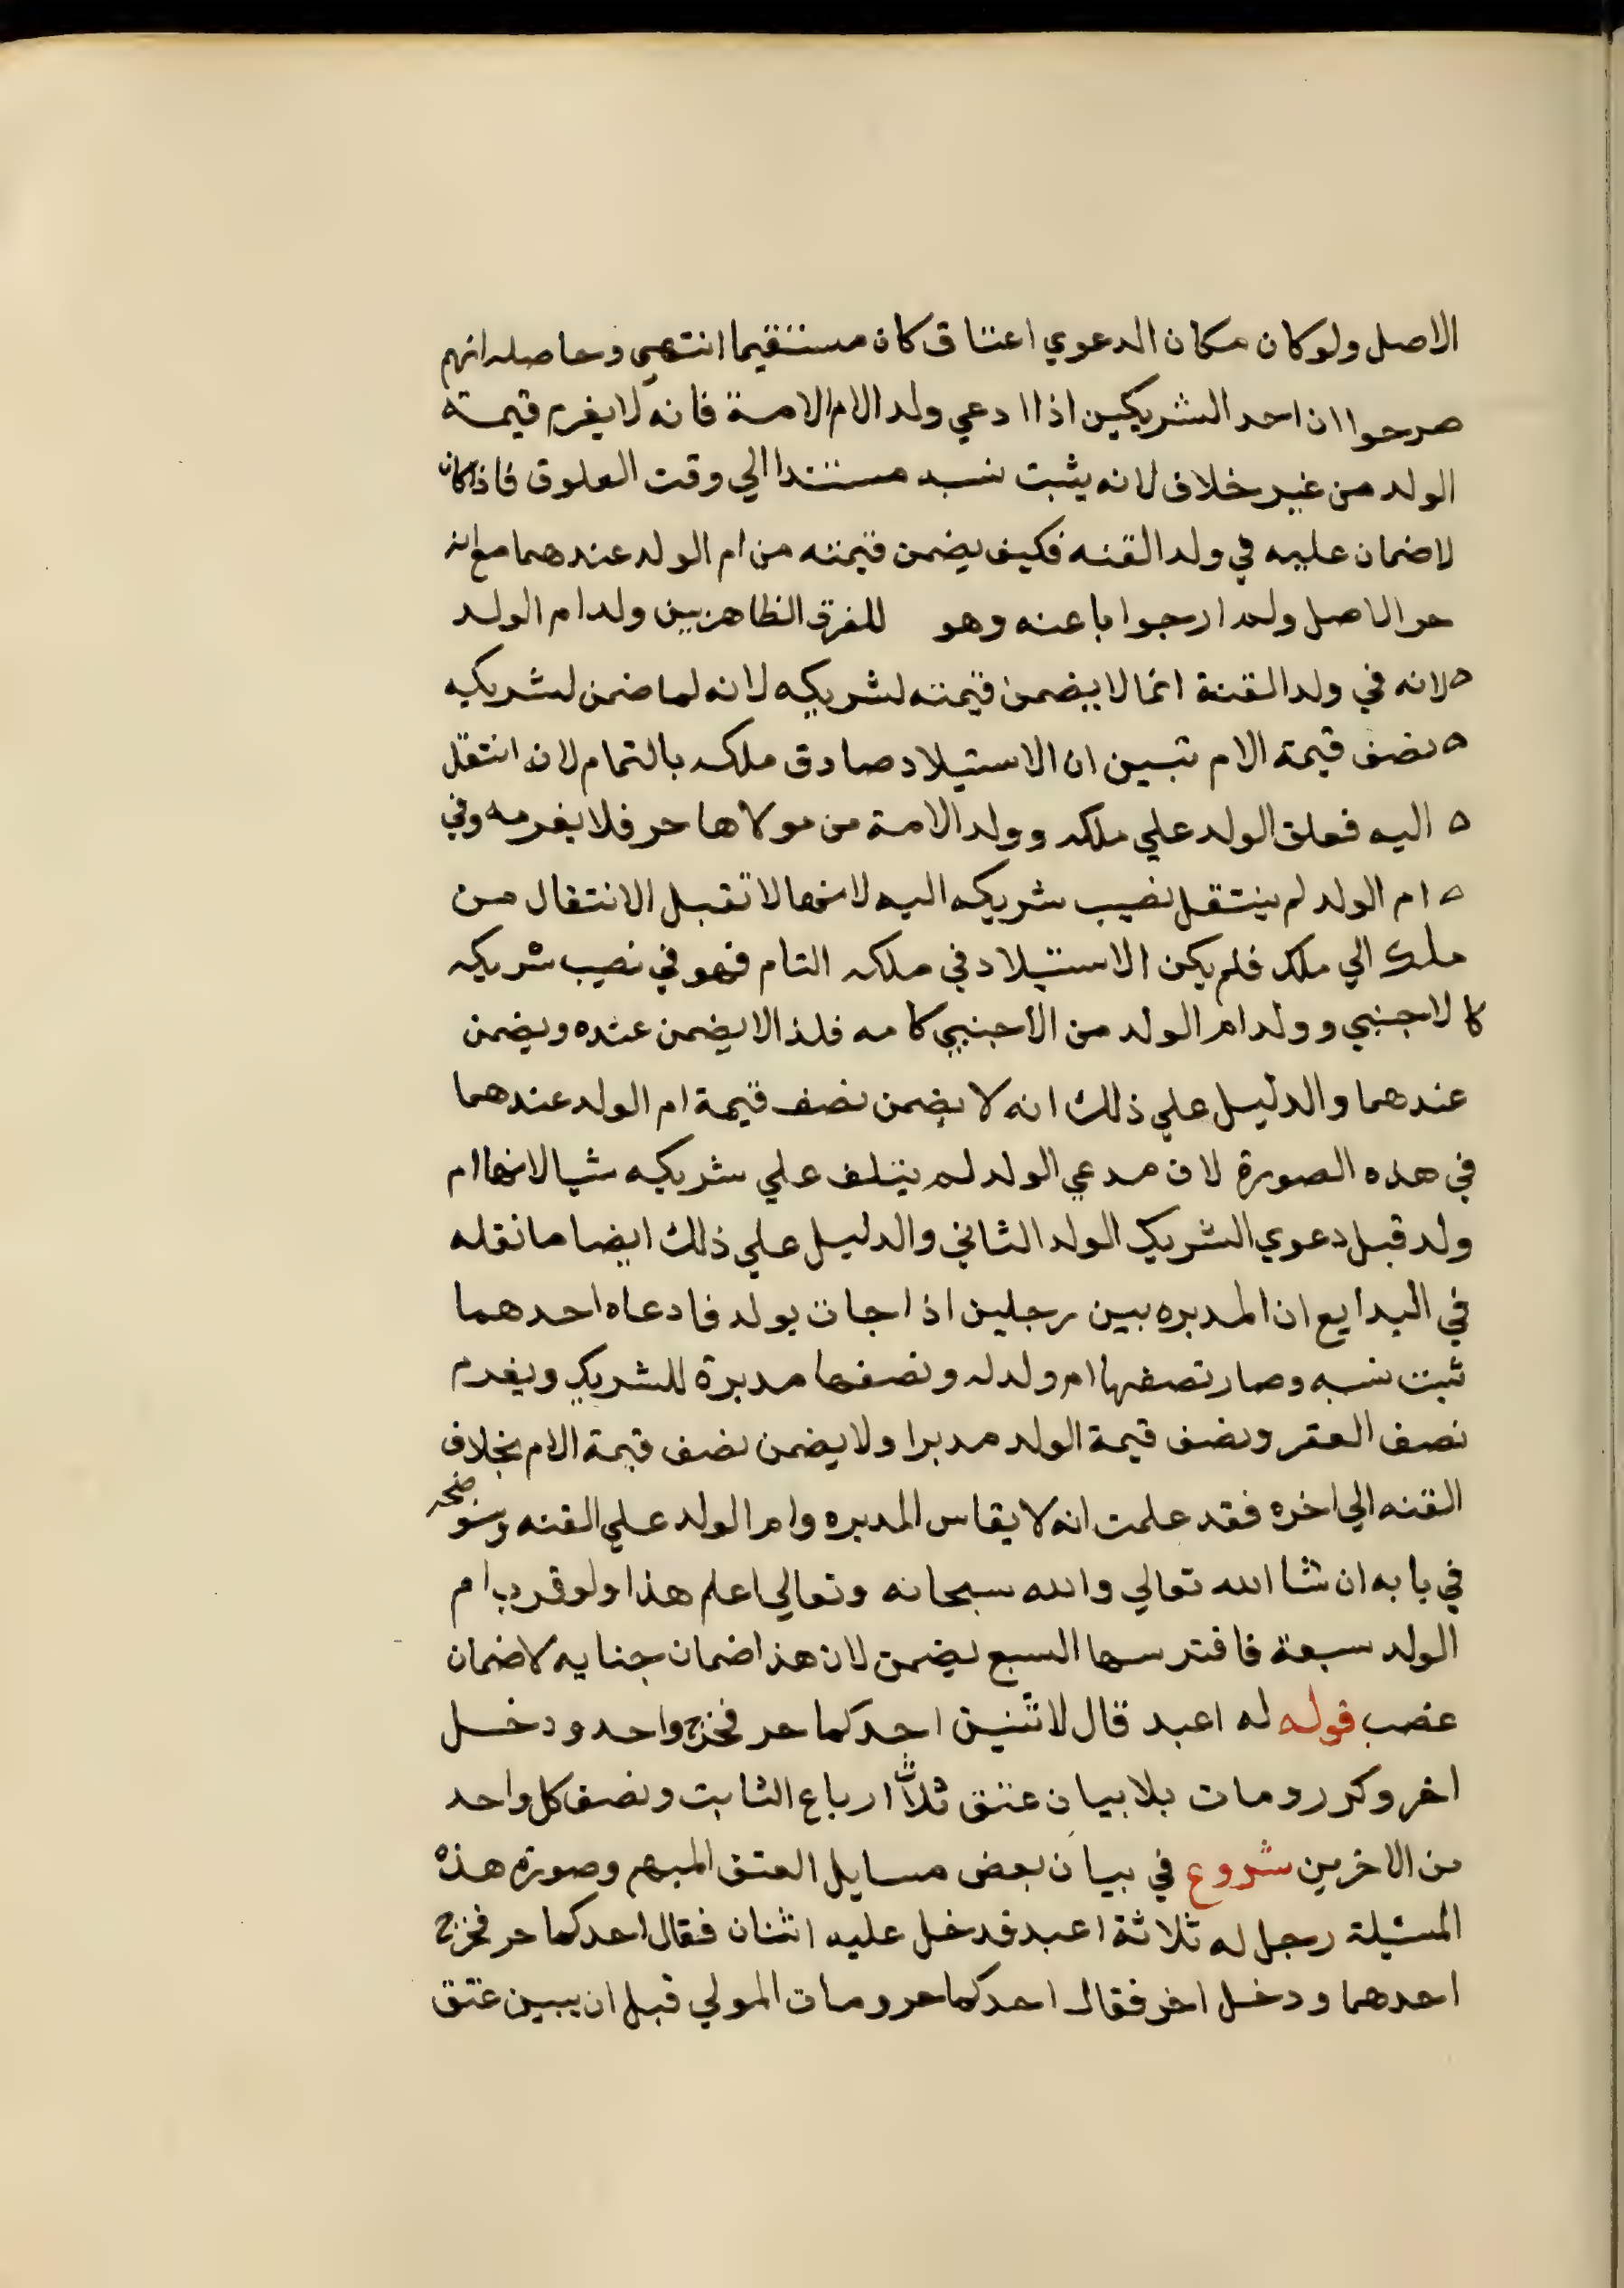 الاصل ولو كان مكان الدعوي اعتاق كان مستقيما انتهي وحاصله انهم
صرحوا ان احد الشريكين اذا ادعي ولد الام الامة فانه لا يغرم قيمته
الولد من غير خلاف لانه يثبت نسبه مستندا الي وقت العلوق فاذا كان
لا ضمان عليه في ولد القنه فكيف يضمن قيمته من ام الولد عندهما مع انه
حر الاصل ولم ار جوابا عنه وهو للفرق الظاهر بين ولد ام الولد
لانه في ولد القنة انما لا يضمن قيمته لشريكه لانه لما ضمن لشريكه
نصف قيمة الام تبين ان الاستيلاد صادق ملكه بالتمام لانه انتقل
اليه فعلق الولد علي ملكه وولد الامة من مولاها حر فلا يغرمه وفي
ام الولد لم ينتقل نصيب شريكه اليه لانها لا تقبل الانتقال من
ملك الي ملك فلم يكن الاستيلاد في ملكه التام فهو في نصيب شريكه
كالاجنبي وولد ام الولد من الاجنبي كامه فلذا لا يضمن عنده ويضمن
عندهما والدليل علي ذلك انه لا يضمن نصف قيمة ام الولد عندهما
في هذه الصورة لان مدعي الولد لم يتلف علي شريكه شيا لانها ام
ولد قبل دعوي الشريك الولد الثاني والدليل علي ذلك ايضا ما نقله
في البدايع ان المدبره بين رجلين اذا جات بولد فادعاه احدهما
ثبت نسبه وصار نصفها ام ولد له ونصفها مدبرة للشريك ويغرم
نصف العقر ونصف قيمة الولد مدبرا ولا يضمن نصف قيمة الام بخلاف
القنه الي اخره فقد علمت انه لا يقاس المدبره وام الولد علي القنه وسنوضحه
في بابه ان شا الله تعالي والله سبحانه وتعالي اعلم هذا ولو قرب ام
الولد سبعة فافترسها السبع يضمن لان هذا ضمان جنايه لا ضمان
غصب قوله له اعبد قال لاثنين احدكما حر فخرج واحد ودخل
اخر وكرر ومات بلا بيان عتق ثلاث ارباع الثابت ونصف كل واحد
من الاخرين شروع في بيان بعض مسايل العتق المبهم وصورة هذه
المسئيلة رجل له ثلاثة اعبد فدخل عليه اثنان فقال احدكما حر فخرج
احدهما ودخل اخر فقال احدكما حر ومات المولي قبل ان يبين عتق